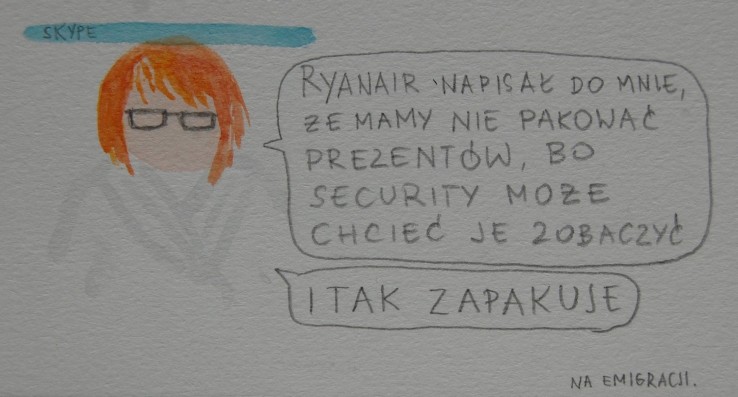 SKYPE
RYANAIR NAPISAŁ DO MNIE,
ŻE MAMY NIE PAKOWAĆ
PREZENTÓW, BO
SECURITY MOŻE
CHCIEĆ JE ZOBACZYĆ
I TAK ZAPAKUJE
NA EMIGRACJI.